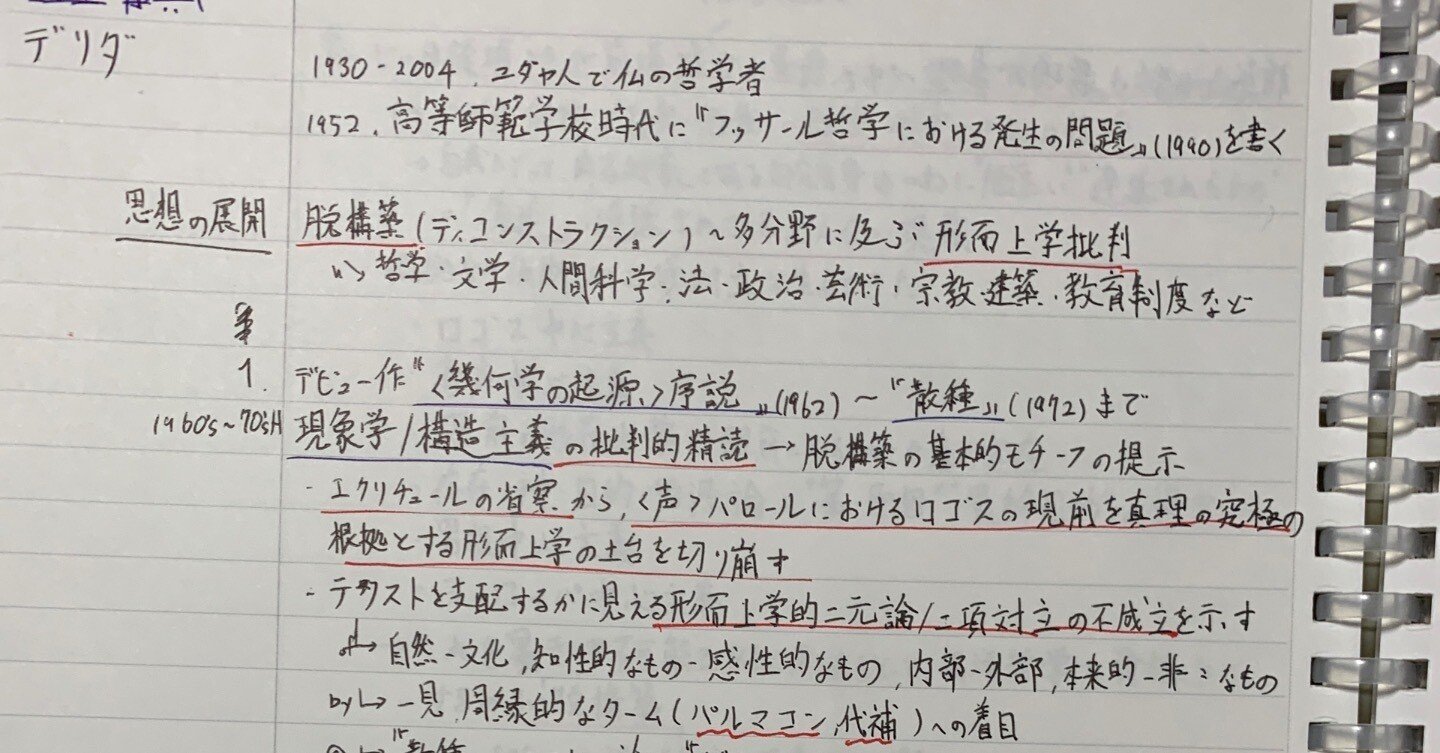 デリダ
1930-2004. ユダヤ人で仏の哲学者
1952. 高等師範学校時代に『フッサール哲学における発生の問題』(1990)を書く
思想の展開 脱構築(ディコンストラクション)~多分野に及ぶ形而上学批判
哲学・文学・人間科学・法・政治・芸術・宗教・建築・教育制度など
1. デビュー作『〈幾何学の起源〉序説』(1962)~『散種』(1972)まで
1960's~70's 現象学/構造主義の批判的精読→脱構築の基本的モチーフの提示
・エクリチュールの省察から,〈声〉パロールにおけるロゴスの現前を真理の究極の
根拠とする形而上学の土台を切り崩す
・テクストを支配するかに見える形而上学的二元論/二項対立の不成立を示す
↳自然-文化,知性的なもの-感性的なもの,内部-外部,本来的-非〃なもの
by↳一見,周縁的なターム(パルマコン,代補)への着目